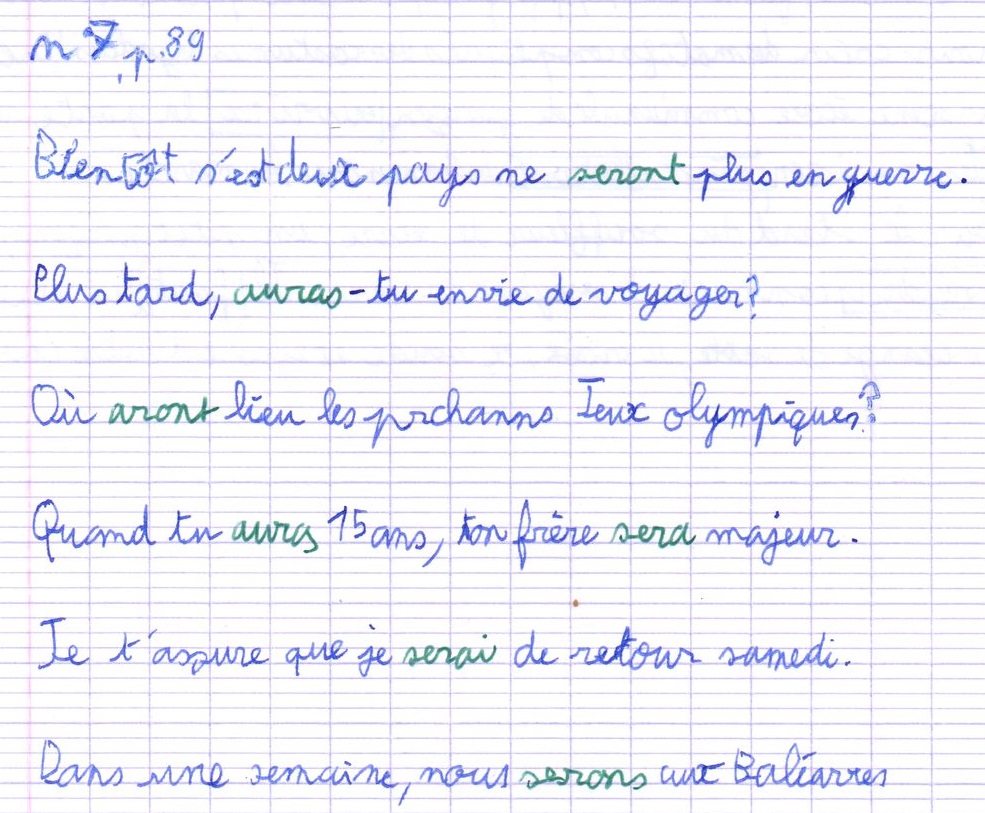 n°7, p.89
Bientôt s'est deux pays ne seront plus en guerre.
Plus tard, auras-tu envie de voyager?
Où aront lieu les prchanns Jeux olympiques?
Quand tu auras 15 ans, ton frère sera majeur.
Je t'assure que je serai de retour samedi.
Dans une semaine, nous serons aux Baléarres